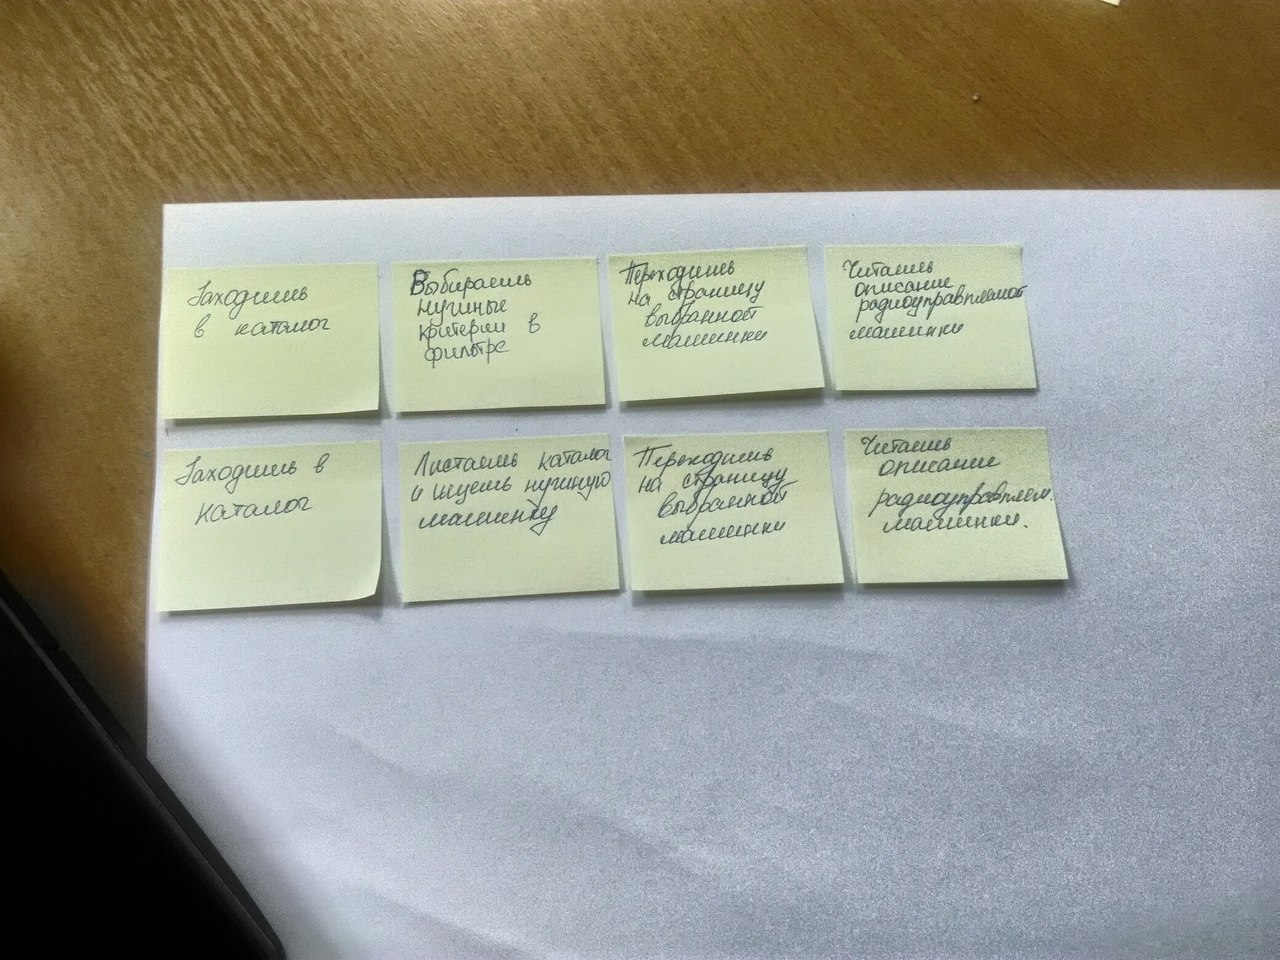 Заходишь
в каталог
Выбираешь
нужные
критерии в
фильтре
Переходишь
на страницу
выбранной
машинки
Читаешь
описание
радиоуправляемой
машинки
Заходишь в
каталог
Листаешь каталог
и ищешь нужную
машинку
Переходишь
на страницу
выбранной
машинки
Читаешь
описание
радиоуправляем.
машинки.